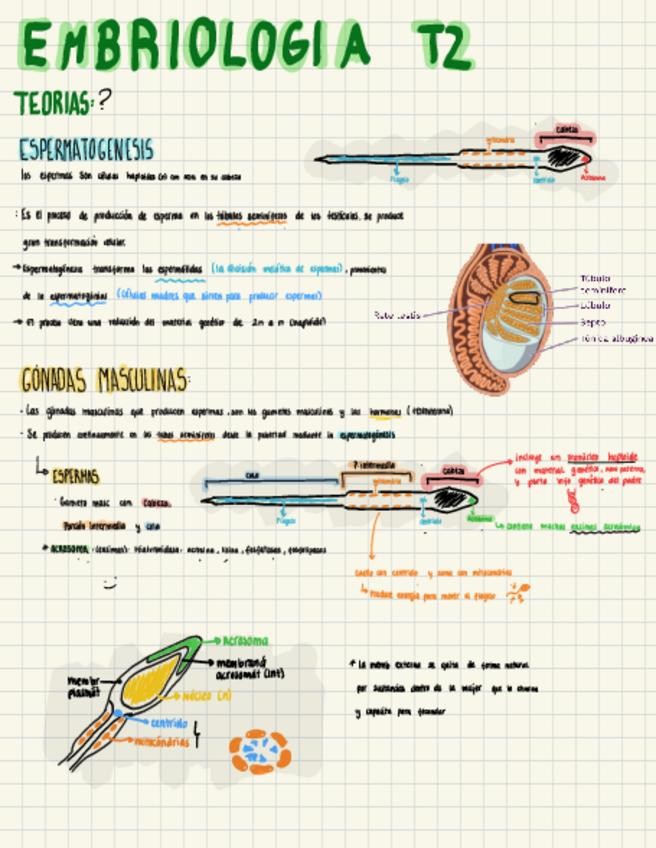 EMBRIOLOGIA T2
TEORIAS:?
ESPERMATOGENESIS
mitocondria
cabeza
los espermas son células haploides (n) con en su cabeza
Flagelo
centriolo
Acrosoma
: Es el proceso de producción de esperma en los túbulos seminíferos de los testículos, se produce
gran transformación celular.
→ Espermatogénesis transforma las espermátidas (la división meiótica de espermas),
de la espermatogonias (células madres que sirven para producir espermas)
→ El proceso lleva una reducción del material genético de 2n a n (haploide)
Túbulo
seminífero
Lóbulo
Rete testis
Septo
Túnica albugínea
GÓNADAS MASCULINAS:
· Las gónadas masculinas que producen espermas, son los gametos masculinos y las hormonas (testosterona)
· Se producen continuamente en los tubos seminíferos desde la pubertad mediante la espermatogénesis
ESPERMAS
cola
P. intermedia
mitocondria
cabeza
Incluye un pronúcleo haploide
con material genético,
y porta info genética del padre
· Gameto masc con Cabeza,
Porción intermedia y cola
Flagelo
centriolo
Acrosoma
contiene muchas enzimas acrosómicas
* Acrosoma: (enzimas): Hialuronidasa,
Cuello con centriolo y zona con mitocondrias
↳ Produce energía para mover el flagelo
Acrosoma
membrana
acrosomát (int)
membr
plasmát
núcleo (n)
centriolo
mitocondrias
* La memb externa se quita de forma natural
por sustancias dentro de la mujer que lo
y capacita para fecundar